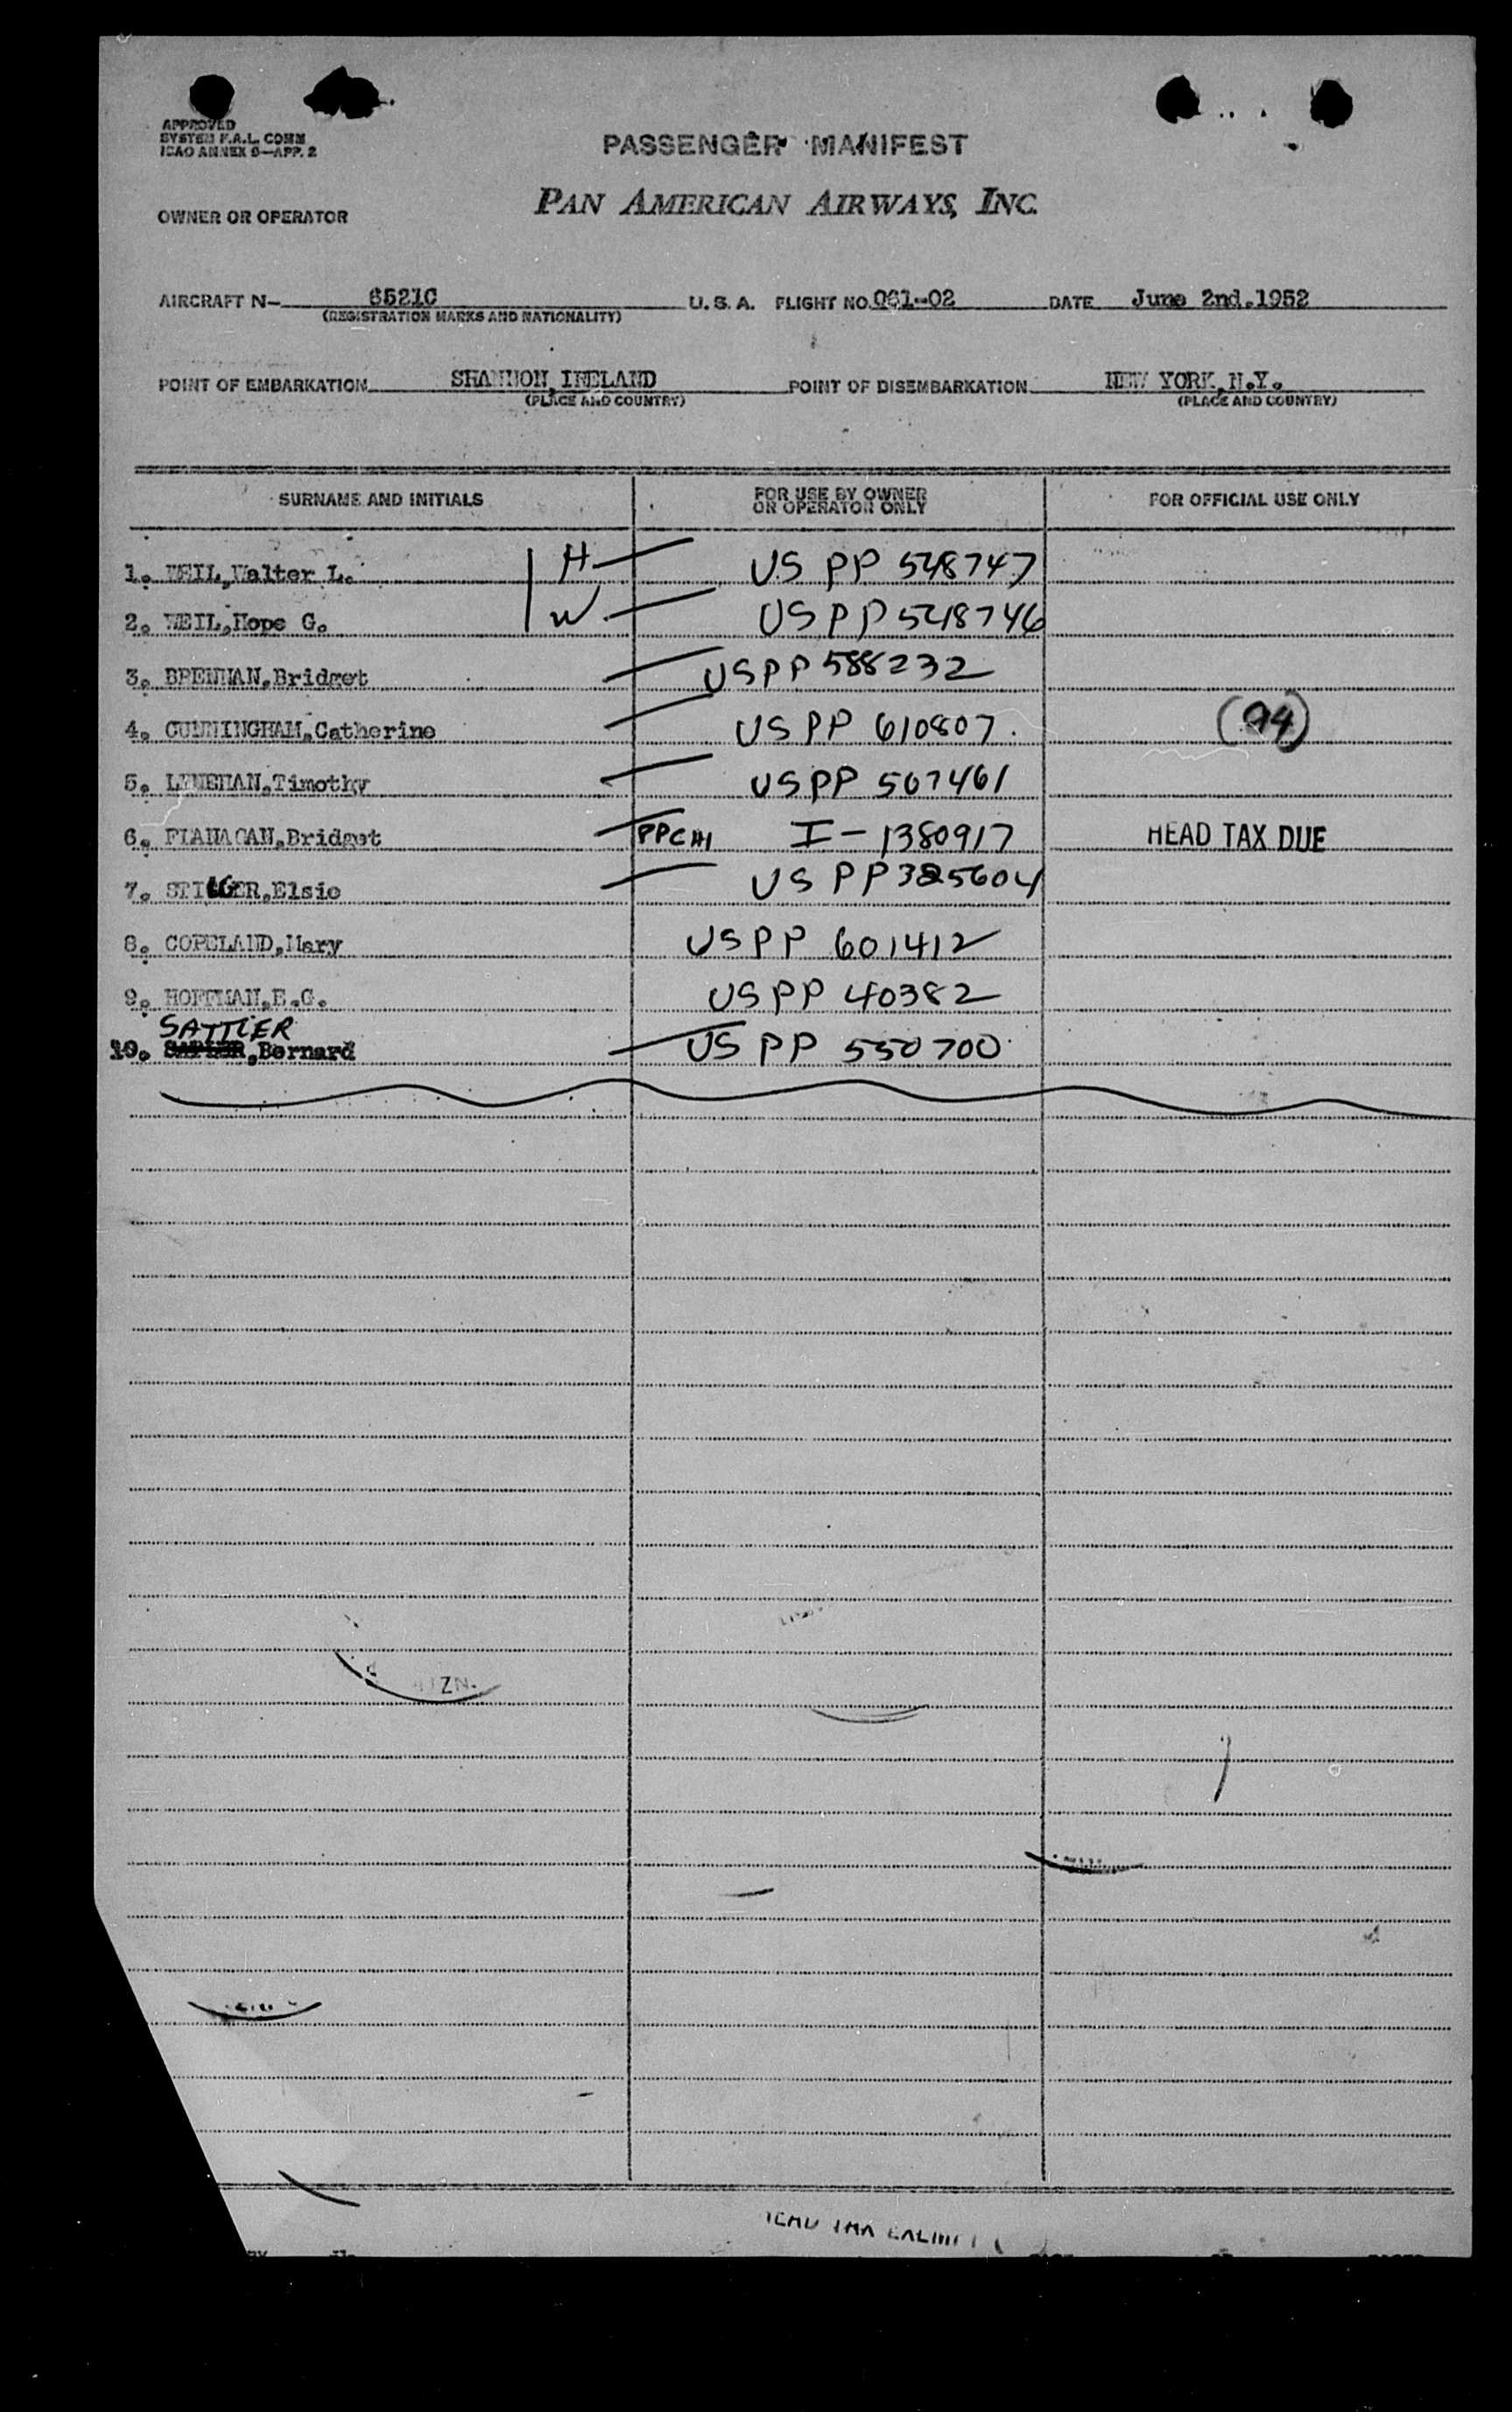 APPROVED
SYSTEM F.A.L. COMM
ICAO ANNEX 9—APP. 2
PASSENGER MANIFEST
PAN AMERICAN AIRWAYS, INC.
OWNER OR OPERATOR
AIRCRAFT N- 6521C U.S.A. FLIGHT NO. 061-02 DATE June 2nd.1952
(REGISTRATION MARKS AND NATIONALITY)
POINT OF EMBARKATION SHANNON, IRELAND POINT OF DISEMBARKATION NEW YORK, N.Y.
(PLACE AND COUNTRY) (PLACE AND COUNTRY)
SURNAME AND INITIALS FOR USE BY OWNER OR OPERATOR ONLY FOR OFFICIAL USE ONLY
1. WEIL,Walter L. H US PP 548747
2. WEIL,Hope G. W US PP 548746
3. BRENNAN,Bridget US PP 588232
4. CUNNINGHAM,Catherine US PP 610807. (94)
5. LINEHAN,Timothy US PP 507461
6. FLANAGAN,Bridget I-1380917 HEAD TAX DUE
7. Elsie US PP 325604
8. COPELAND,Mary US PP 601412
9. HOFFMAN,E.G. US PP 40382
SATTLER
10. ,Bernard US PP 550700